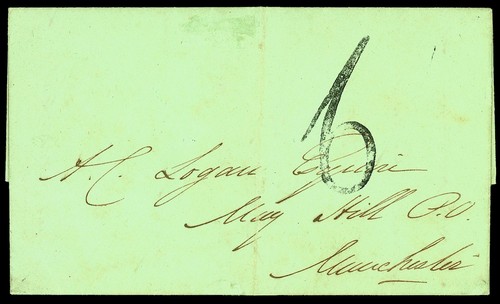 6
A. C. Logan Esquire
May Hill P.O.
Manchester